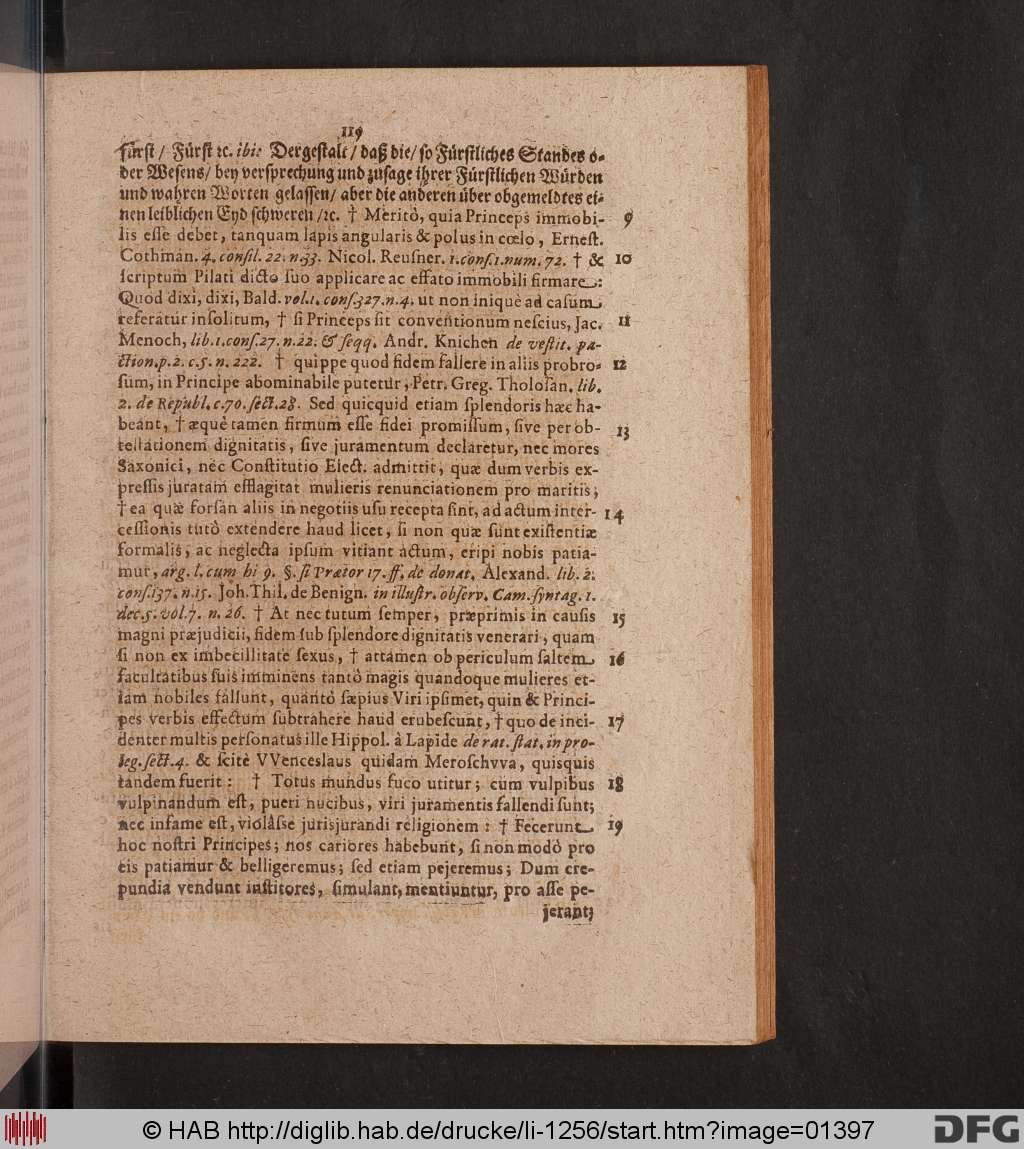 119
fürst / Fürst ꝛc. ibi: Dergestalt / daß die / so Fürstliches Standes o-
der Wesens / bey versprechung und zusage ihrer Fürstlichen Würden
und wahren Worten gelassen / aber die anderen über obgemeldtes ei-
nen leiblichen Eyd schweren /ꝛc. † Meritò, quia Princeps immobi- 9
lis esse debet, tanquam lapis angularis & polus in cœlo, Ernest.
Cothman. 4. consil. 22. n. 33. Nicol. Reusner. 1. cons. 1. num. 72. † & 10
scriptum Pilati dicto suo applicare ac effato immobili firmare:
Quod dixi, dixi, Bald. vol. 1. cons. 327. n. 4. ut non iniquè ad casum
referatur insolitum, † si Princeps sit conventionum nescius, Jac. 11
Menoch, lib. 1. cons. 27. n. 22. & seqq. Andr. Knichen de vestit. pa-
ction. p. 2. c. 5. n. 222. † quippe quod fidem fallere in aliis probro- 12
sum, in Principe abominabile putetur, Petr. Greg. Tholosan. lib.
2. de Republ. c. 70. sect. 28. Sed quicquid etiam splendoris hæc ha-
beant, † æquè tamen firmum esse fidei promissum, sive per ob- 13
testationem dignitatis, sive juramentum declaretur, nec mores
Saxonici, nec Constitutio Elect. admittit, quæ dum verbis ex-
pressis juratam efflagitat mulieris renunciationem pro maritis;
† ea quæ forsan aliis in negotiis usu recepta sint, ad actum inter- 14
cessionis tutò extendere haud licet, si non quæ sunt existentiæ
formalis, ac neglecta ipsum vitiant actum, eripi nobis patia-
mur, arg. l. cum hi 9. §. si Prætor 17. ff. de donat. Alexand. lib. 2.
cons. 137. n. 15. Joh. Thil. de Benign. in illustr. observ. Cam. syntag. 1.
dec. 5. vol. 7. n. 26. † At nec tutum semper, præprimis in causis 15
magni præjudicii, fidem sub splendore dignitatis venerari, quam
si non ex imbecillitate sexus, † attamen ob periculum saltem 16
facultatibus suis imminens tantò magis quandoque mulieres et-
iam nobiles fallunt, quantò sæpius Viri ipsimet, quin & Princi-
pes verbis effectum subtrahere haud erubescunt, † quo de inci- 17
denter multis personatus ille Hippol. à Lapide de rat. stat. in pro-
leg. sect. 4. & scitè VVenceslaus quidam Meroschvva, quisquis
tandem fuerit: † Totus mundus fuco utitur; cum vulpibus 18
vulpinandum est, pueri nucibus, viri juramentis fallendi sunt;
nec infame est, violâsse jurisjurandi religionem: † Fecerunt 19
hoc nostri Principes; nos cariores habebunt, si non modò pro
eis patiamur & belligeremus; sed etiam pejeremus; Dum cre-
pundia vendunt institores, simulant, mentiuntur, pro asse pe-
jerant;
© HAB http://diglib.hab.de/drucke/li-1256/start.htm?image=01397
DFG